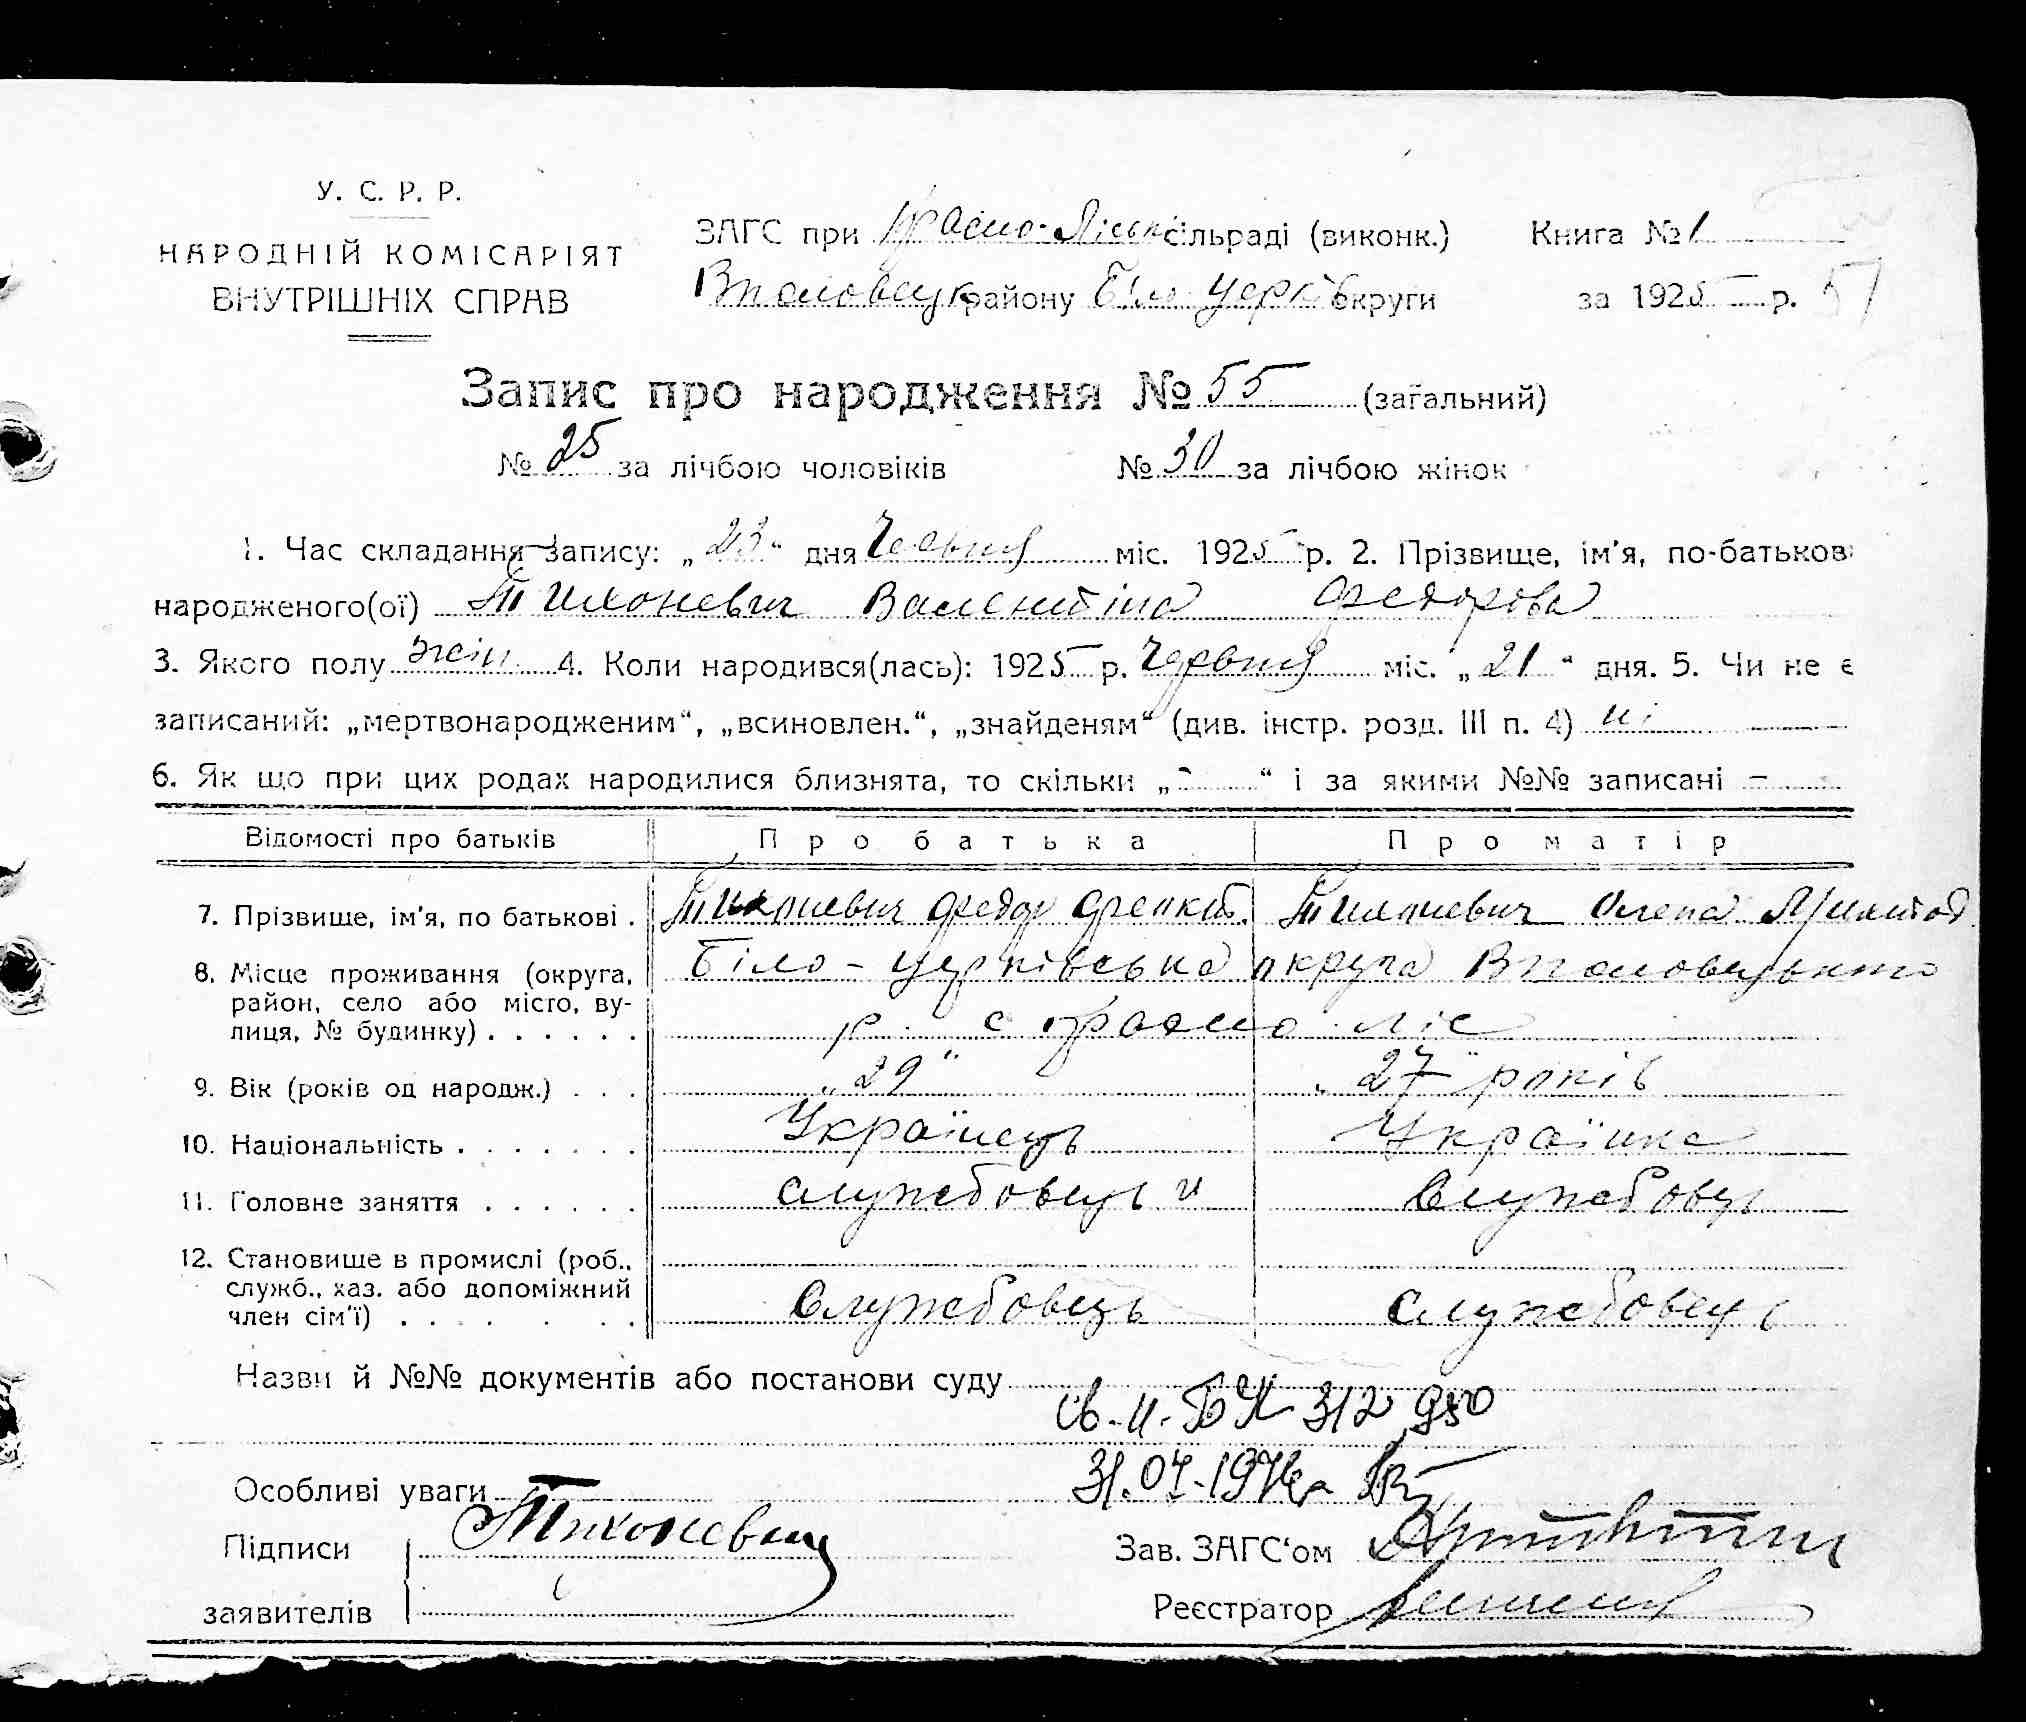 У. С. Р. Р.
НАРОДНІЙ КОМІСАРІЯТ
ВНУТРІШНІХ СПРАВ
ЗАГС при Красно-Ліськ сільраді (виконк.) Книга № 1
Володарськ району Біло Церків округи за 1925 р. 57
Запис про народження № 55 (загальний)
№ 25 за лічбою чоловіків № 30 за лічбою жінок
1. Час складання запису: „23“ дня Червня міс. 1925 р. 2. Прізвище, ім'я, по-батькові
народженого(ої) Тихоневич Валентіна Федорова
3. Якого полу жін. 4. Коли народився(лась): 1925 р. Червня міс. „21“ дня. 5. Чи не є
записаний: „мертвонародженим“, „всиновлен.“, „знайденям“ (див. інстр. розд. III п. 4) ні
6. Як що при цих родах народилися близнята, то скільки „-“ і за якими №№ записані —
Відомості про батьків Про батька Про матір
7. Прізвище, ім'я, по батькові . Тихоневич Федор Тихоневич Олена
8. Місце проживання (округа, Біло-Церківська округа
район, село або місто, ву-
лиця, № будинку) . . . . . . р. с
9. Вік (років од народж.) . . . „29“ „27“ років
10. Національність . . . . . . . Українець Українка
11. Головне заняття . . . . . . службовець Службовець
12. Становище в промислі (роб.,
служб., хаз. або допоміжний
член сім'ї) . . . . . . . Службовець Службовець
Назви й №№ документів або постанови суду
312 950
Особливі уваги 31.07.1976р
Підписи Тихоневич Зав. ЗАГС'ом
заявителів Реєстратор